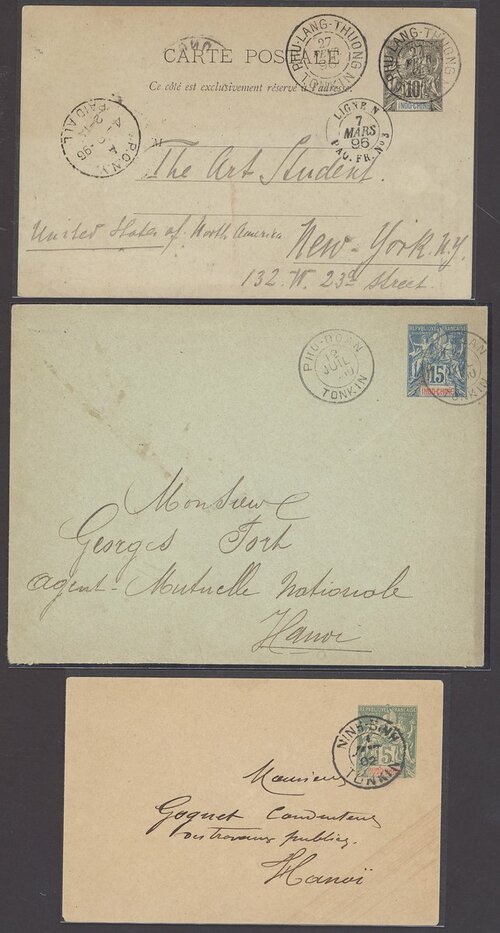 CARTE POSTALE
Ce côté est exclusivement réservé à l'adresse.
PHU-LANG-THUONG
27
FEVR
96
TONKIN
PHU-LANG-THUONG
27
FEVR
10
INDO-CHINE
LIGNE N
7
MARS
96
PAQ. FR. No 3
P.O.N.Y.
96
PAID ALL
M
The Art Student.
United States of North America
New-York. N.Y.
132. W. 23rd Street.
PHU-DOAN
JUIL
TONKIN
REPUBLIQUE FRANÇAISE
15
INDO-CHINE
TONKIN
Monsieur
Georges Fort
agent-Mutuelle Nationale
Hanoi
NINH-BINH
1
02
TONKIN
5
Monsieur
Goquet Conducteur
des travaux publics.
Hanoï